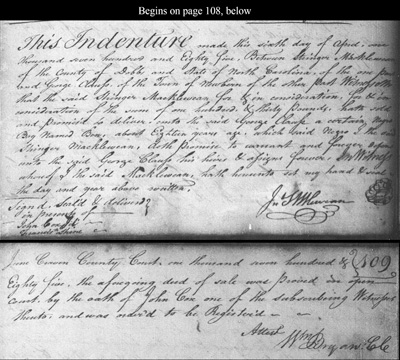 Begins on page 108, below
This Indenture made this sixth day of April, one
thousand seven hundred and Eighty five, Between Stringer Macklewean
of the County of Dobbs and State of North Carolina, of the one part
and George Clause, of the Town of Newbern of the other
that the said Stringer Macklewean for & in consideration
consideration of the hundred & thirty Pounds, hath sold
and promised to deliver unto the said George Clause a certain Negro
Boy Named Ben, about Eighteen years age, which said Negro I the said
Stringer Macklewean, doth Promise to warrant and forever defend
unto the said George Clause his heirs & assigns forever. In Witness
whereof I the said Macklewean, hath hereunto set my hand & seal
the day and year above written.
Signed Seald & delivered
in presence of
John Cox
June Craven County Court, one thousand seven hundred &
109
Eighty five, the aforegoing deed of sale was Proved in open
Court, by the oath of John Cox one of the subscribing Witnesses
thereto, and was ordd to be Registerd
Attest
Wm Bryan CC